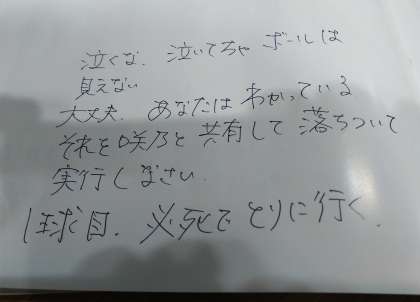 泣くな．泣いてちゃ ボールは
見えない
大丈夫．あなたは わかっている
それを咲乃と共有して落ちついて
実行しなさい．
1球目．必死でとりに行く．